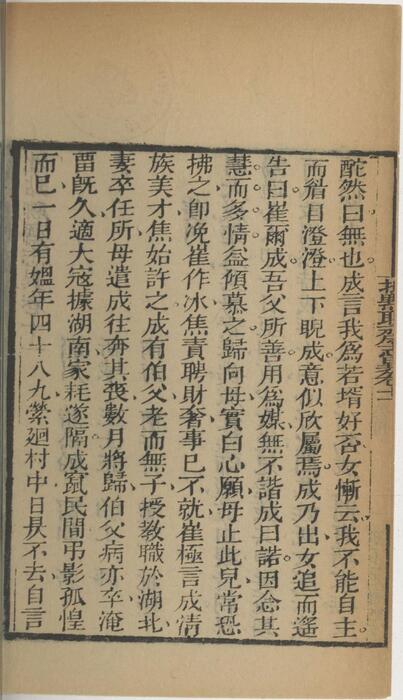 酡然曰無也成言我爲若壻好否女慚云我不能自主
而眉目澄澄上下睨成意似欣屬焉成乃出女追而遙
告曰崔爾成吾父所善用爲媒無不諧成曰諾因念其
慧而多情益傾慕之歸向母實白心願母止此兒常恐
拂之卽浼崔作冰焦責聘財奢事已不就崔極言成情
族美才焦始許之成有伯父老而無子授敎職於湖北
妻卒任所母遣成往奔其喪數月將歸伯父病亦卒淹
畱旣久適大寇據湖南家耗遂隔成竄民間弔影孤惶
而已一日有媼年四十八九縈迴村中日昃不去自言